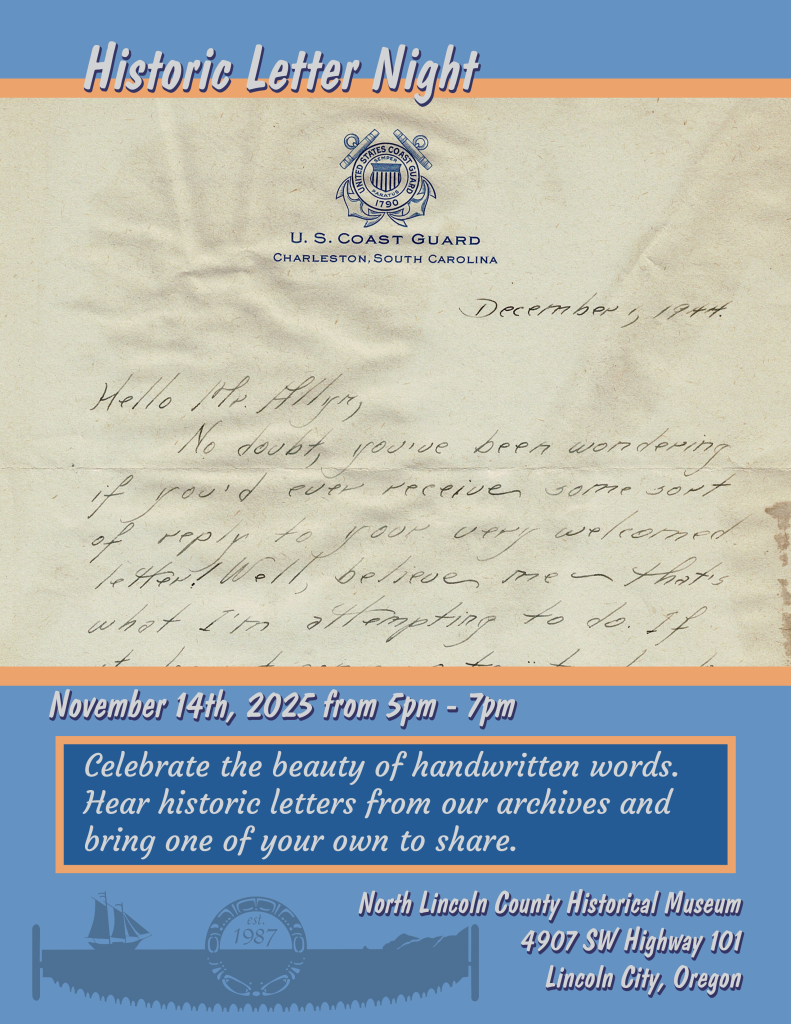 Historic Letter Night
UNITED STATES COAST GUARD
SEMPER
PARATUS
1790
U. S. COAST GUARD
CHARLESTON, SOUTH CAROLINA
December 1, 1944.
Hello Mr. Allyn,
No doubt, you've been wondering
if you'd ever receive some sort
of reply to your very welcomed
letter! Well, believe me — that's
what I'm attempting to do. If
November 14th, 2025 from 5pm - 7pm
Celebrate the beauty of handwritten words.
Hear historic letters from our archives and
bring one of your own to share.
est.
1987
North Lincoln County Historical Museum
4907 SW Highway 101
Lincoln City, Oregon